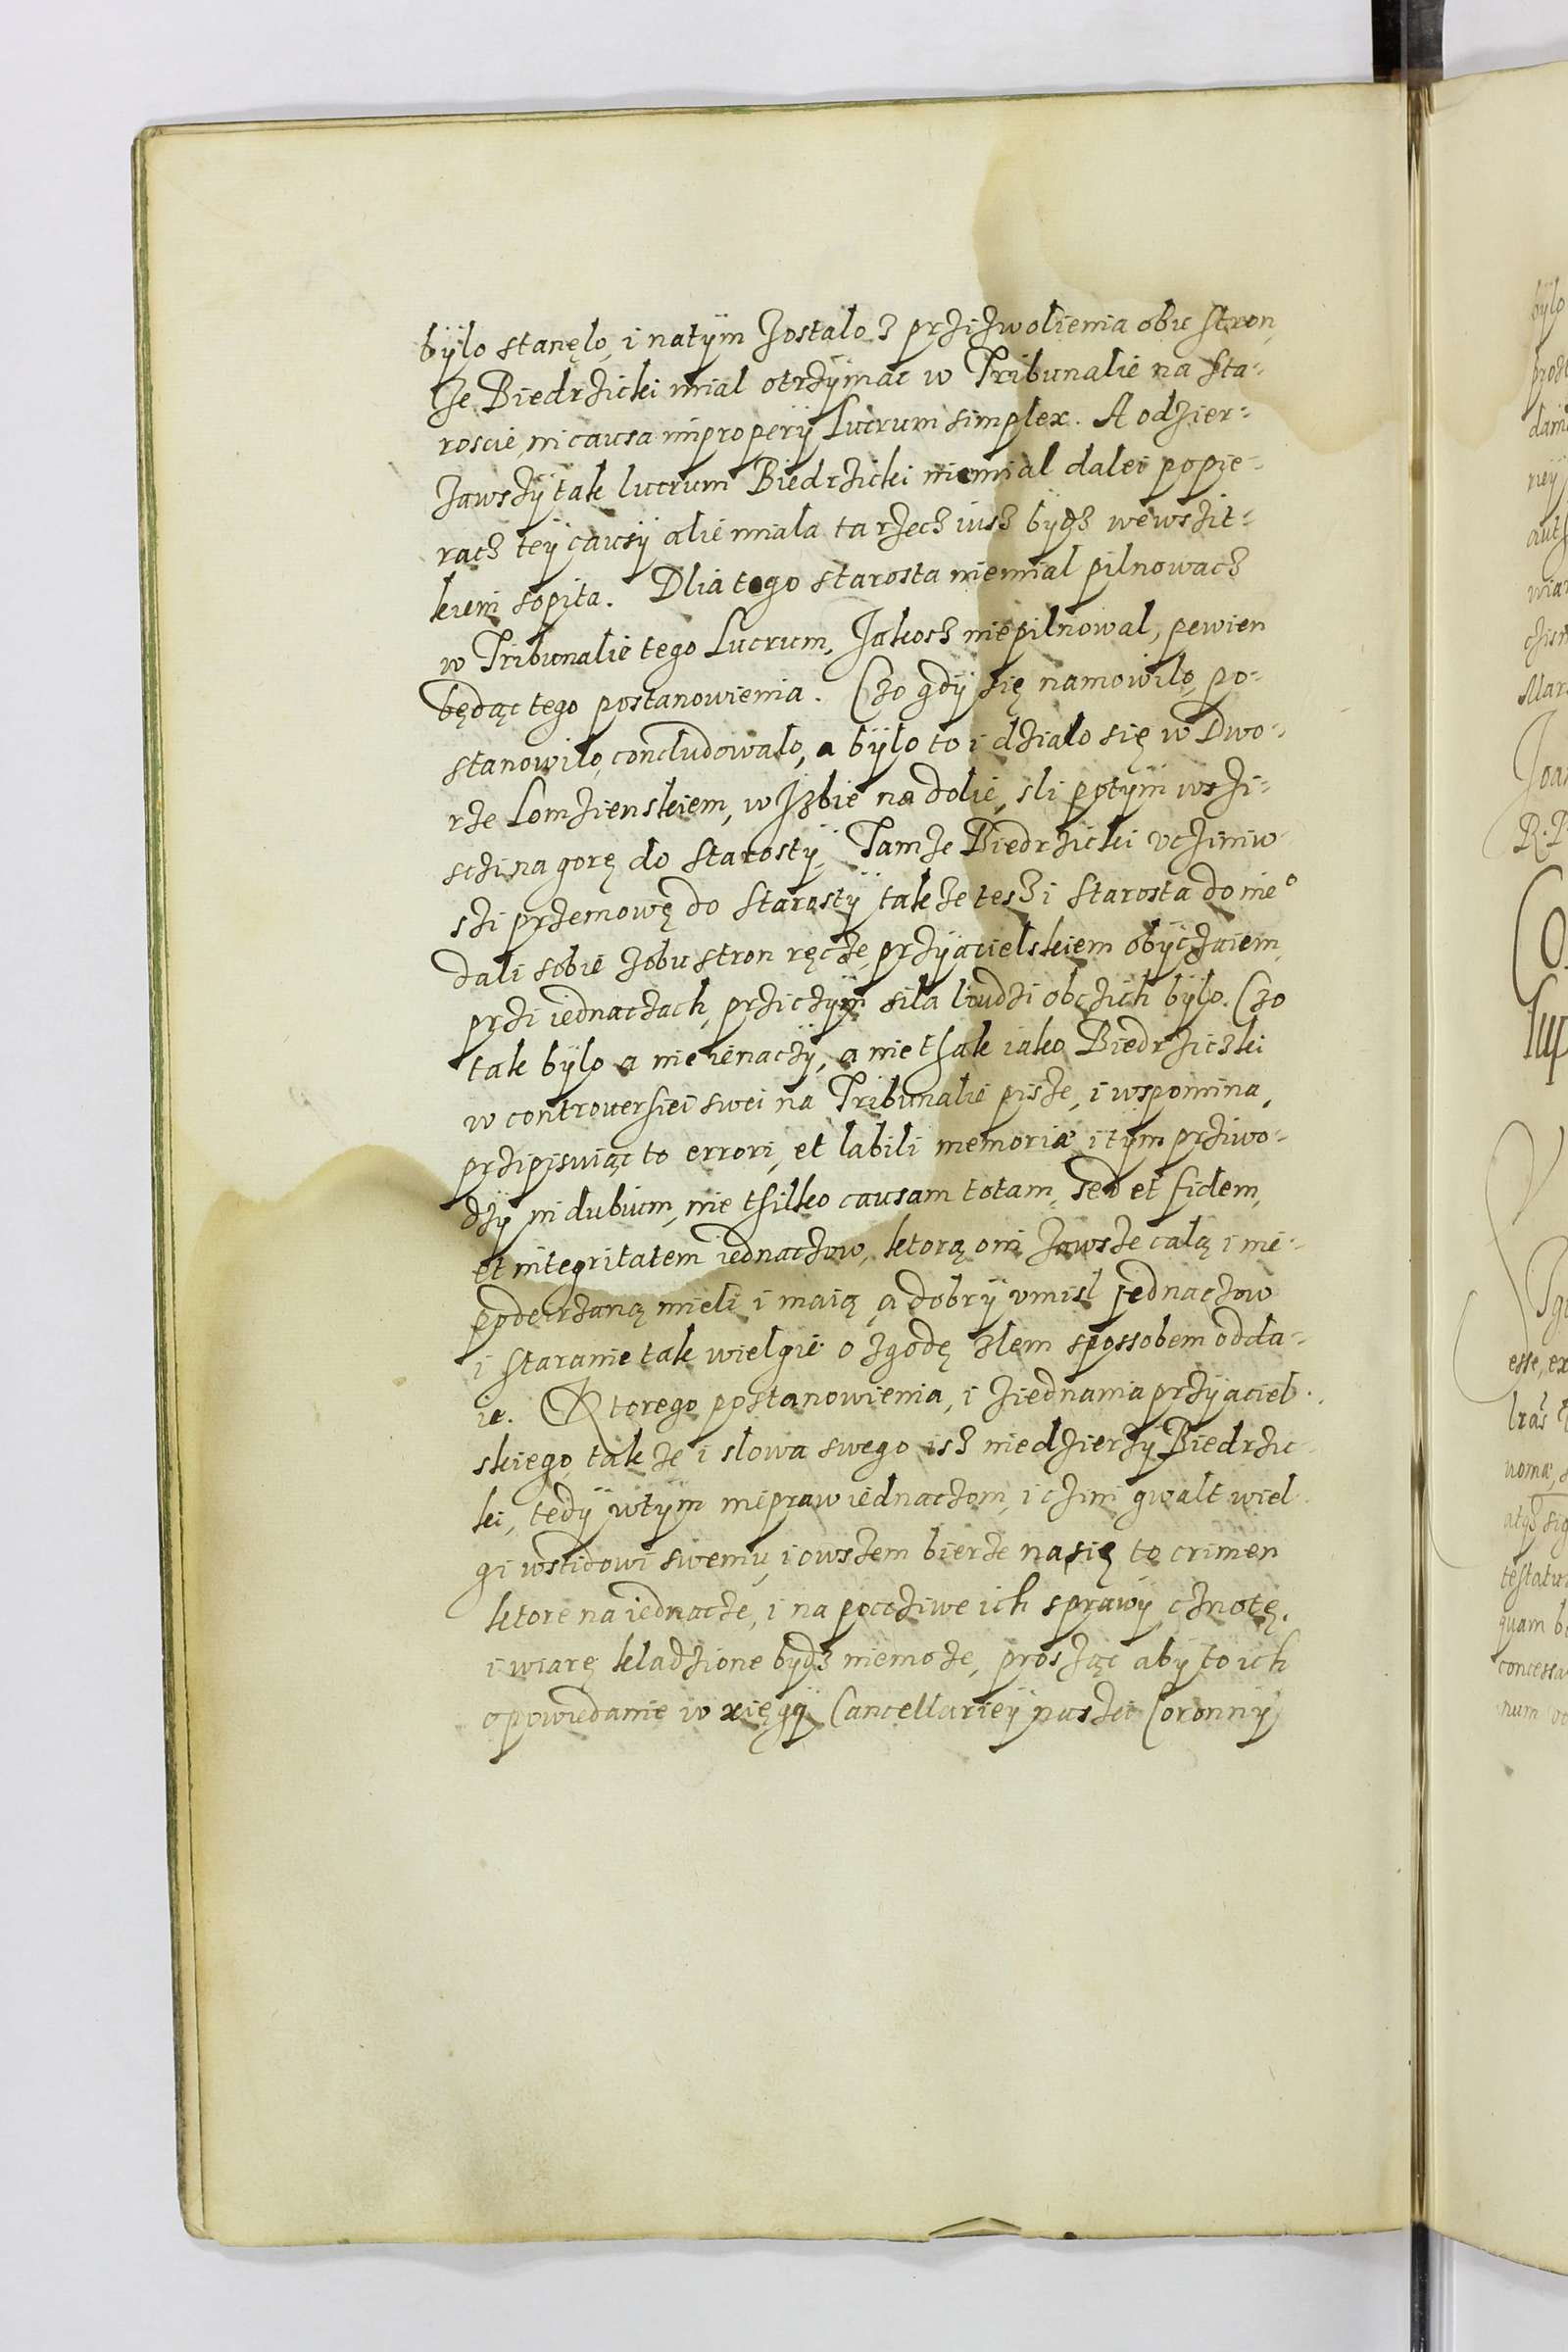 bÿlo stanęlo, i natÿm zostalo z przizwolienia obu stron,
ze Biedrzicki mial otrzÿmac w Tribunalie na Sta-
roscie, in causa improperÿ Lucrum simplex. A odzier-
zawszÿ tak lucrum Biedrzicki niemial dalei popie-
racz teÿ causÿ alie miala ta rzecz iusz bÿdz wewszit-
kiem sopita. Dlia tego starosta niemial pilnowacz
w Tribunalie tego Lucrum, Jakosz niepilnowal, pewien
będąc tego postanowienia. Czo gdÿ się namowilo, po-
stanowilo, concludowalo, a bÿlo to i dzialo się w Dwo-
rze Lomzienskiem, w Jzbie na dolie, sli potÿm wszi-
sczi na gorę do Starostÿ, Tamze Biedrzicki vcziniw
szi przemowę do Starostÿ takze tesz i Starosta do nie°
dali sobie zobustron ręcze, przÿacielskiem obÿczaiem,
przi iednaczach, prziczÿm sila liudzi obczich bÿlo. Czo
tak bÿlo a nie ienaczÿ, a nie tsak iako Biedrziczki
w controuersiei swei na Tribunalie pisze, i wspomina,
przipisuiąc to errori, et labili memoriæ i tÿm prziwo-
dzÿ in dubium, nie tsilko causam totam, sed et fidem,
et integritatem iednaczow, ktorą oni zawsze calą i nie-
podeirzaną mieli i maią, a dobrÿ vmisl jednaczow
i staranie tak wielgie o zgodę zlem spossobem odda-
ie. Ktorego postanowienia, i ziednania przÿaciel-
skiego, takze i slowa swego isz niedzierzÿ Biedrzic-
ki, tedÿ wtÿm niepraw iednaczom, i czini gwalt wiel
gi wstidowi swemu, i owszem bierze na się to crimen
ktore na iednacze, i na poccziwe ich sprawÿ, cznotę,
i wiarę kladzione bÿdz niemoze, prosząc abÿ to ich
opowiedanie w xięgÿ Cancellarieÿ naszei Coronnÿ